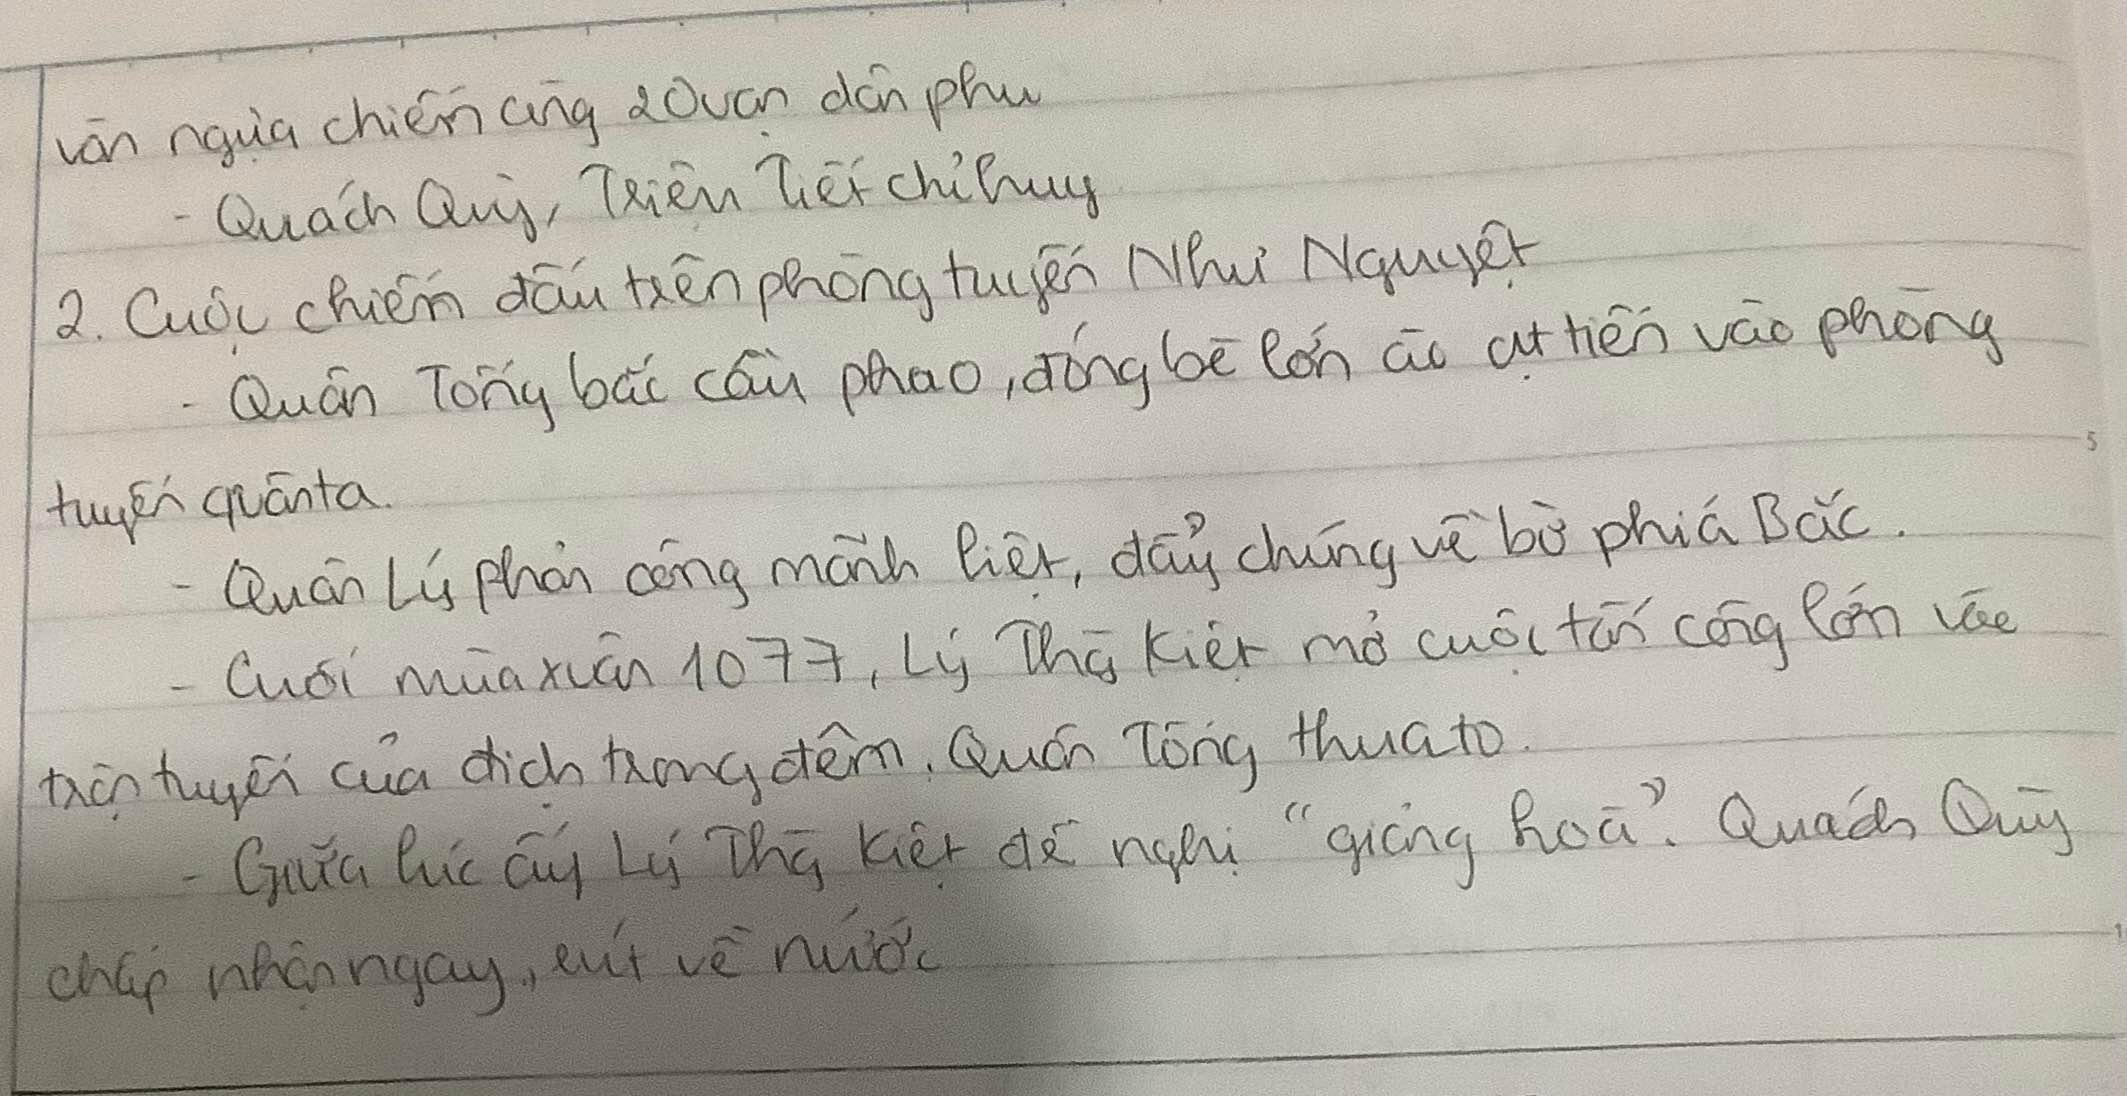 vạn ngựa chiến cùng 20 vạn dân phu
- Quách Quỳ, Triệu Tiết chỉ huy
2. Cuộc chiến đấu trên phòng tuyến Như Nguyệt
- Quân Tống bắc cầu phao, đóng bè lớn ào ạt tiến vào phòng
5
tuyến quân ta.
- Quân Lý phản công mãnh liệt, đẩy chúng về bờ phía Bắc.
- Cuối mùa xuân 1077, Lý Thg Kiệt mở cuộc tấn công lớn vào
trận tuyến của địch trong đêm. Quân Tống thua to.
- Giữa lúc ấy Lý Thg Kiệt đề nghị "giảng hoà". Quách Quỳ
chấp nhận ngay, rút về nước